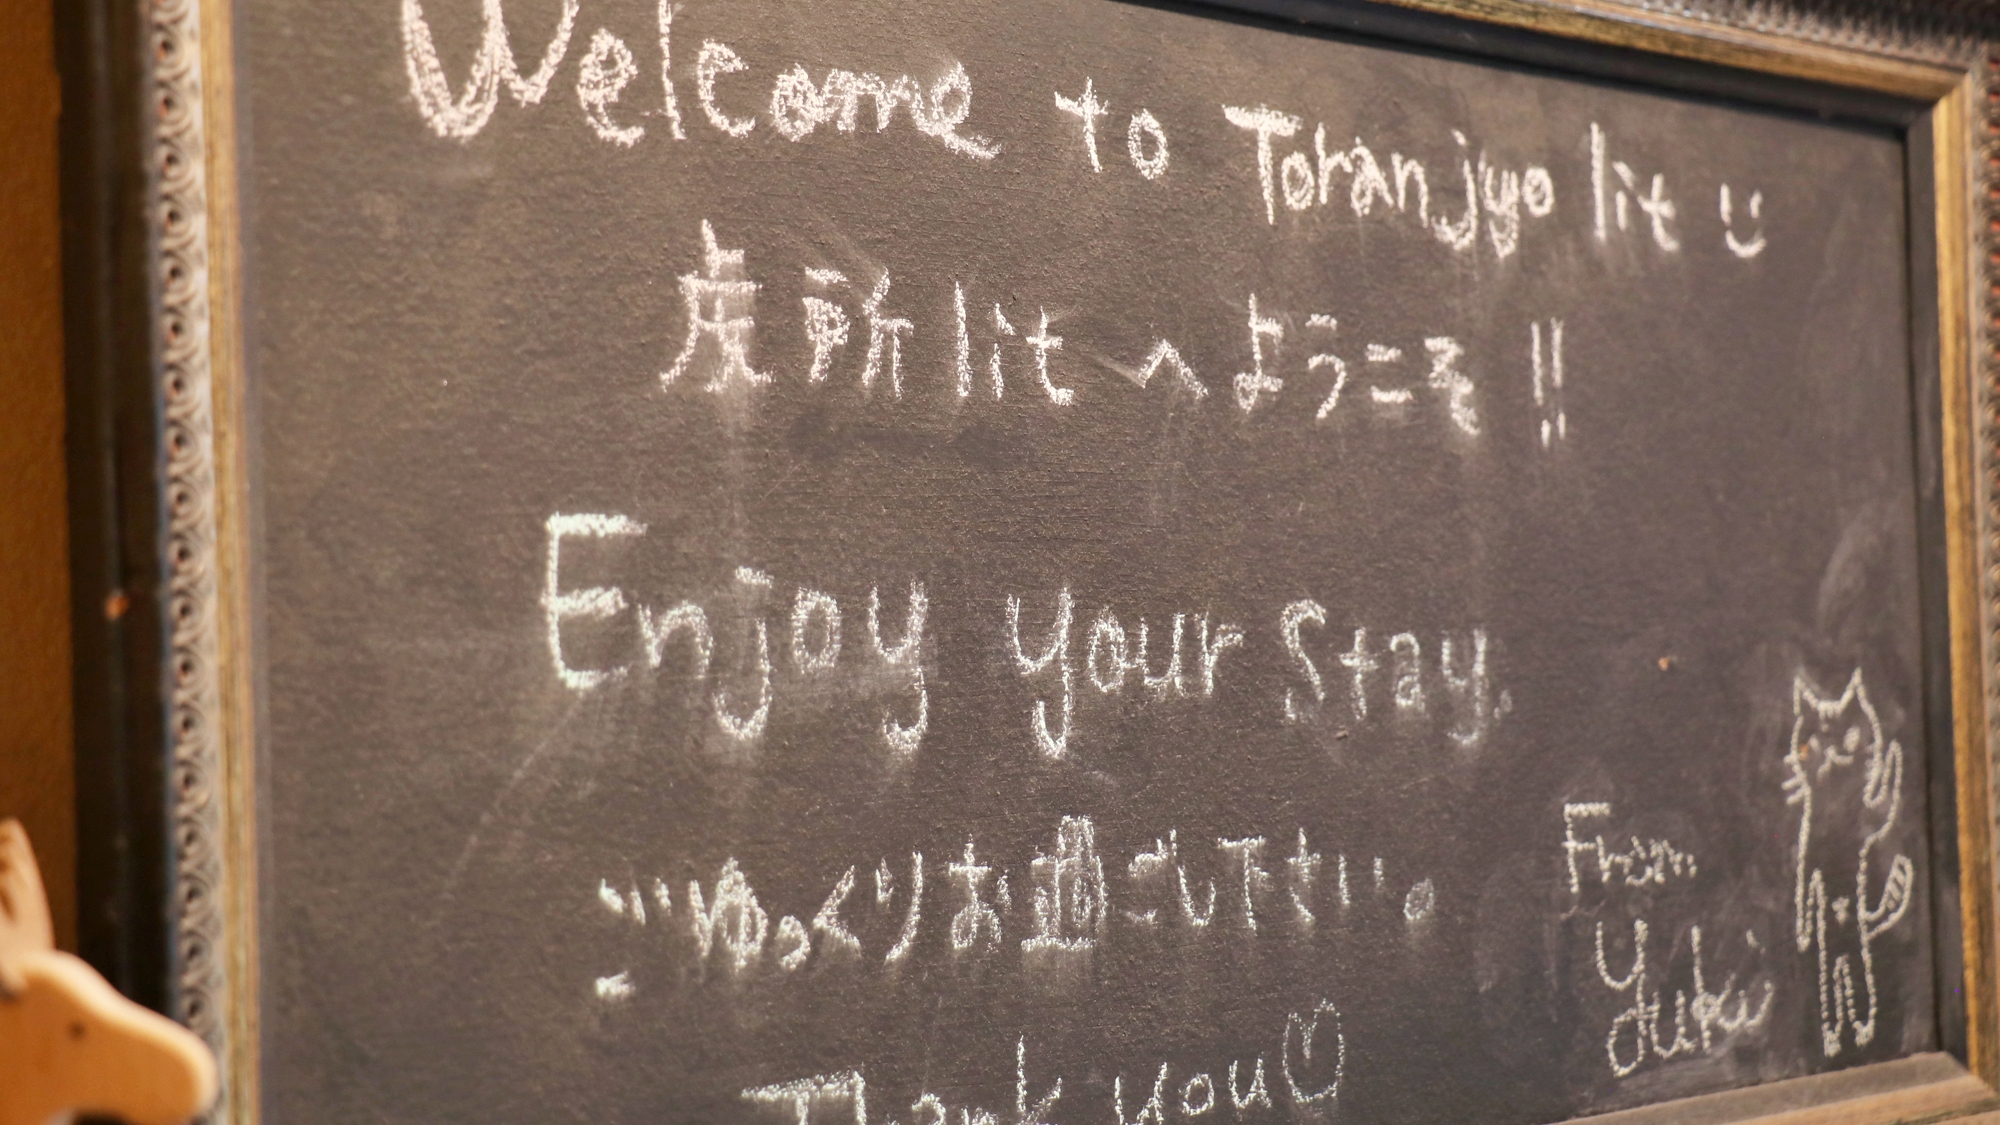 Welcome to Toranjyo lit
虎所 lit へようこそ!!
Enjoy your stay.
ごゆっくりお過ごし下さい。
Thank you
From
Yuki